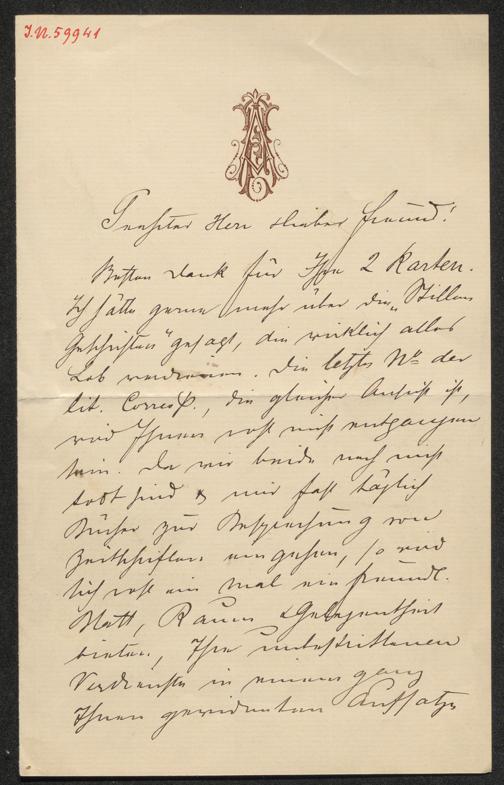 J.N. 59941
Geehrter Herr & lieber Freund!
Besten Dank für Ihre 2 Karten.
Ich hätte gerne mehr über die „Stillen
Geschichten" gesagt, die wirklich alles
Lob verdienen. Die letzte No der
lit. Corresp., die gleicher Ansicht ist,
wird Ihnen wohl nicht entgangen
sein. Da wir beide noch nicht
todt sind & mir fast täglich
Bücher zur Besprechung von
Zeitschriften eingehen, so wird
sich wohl ein mal ein freundl.
Blatt, Raum & Gelegenheit
bieten, Ihre unbestrittenen
Verdienste in einem ganz
Ihnen gewidmeten Aufsatze